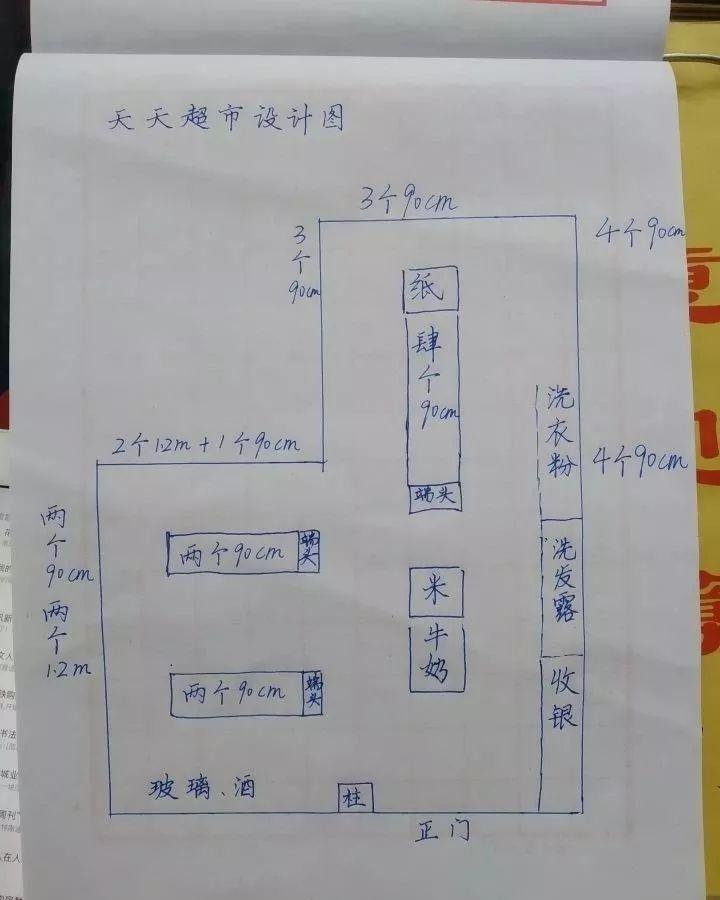 天天超市设计图
3个90cm
3个90cm
4个90cm
纸
肆个90cm
端头
洗衣粉
4个90cm
2个1.2m+1个90cm
两个90cm
两个1.2m
两个90cm
端头
洗发露
米
牛奶
两个90cm
端头
收银
玻璃、酒
柱
正门